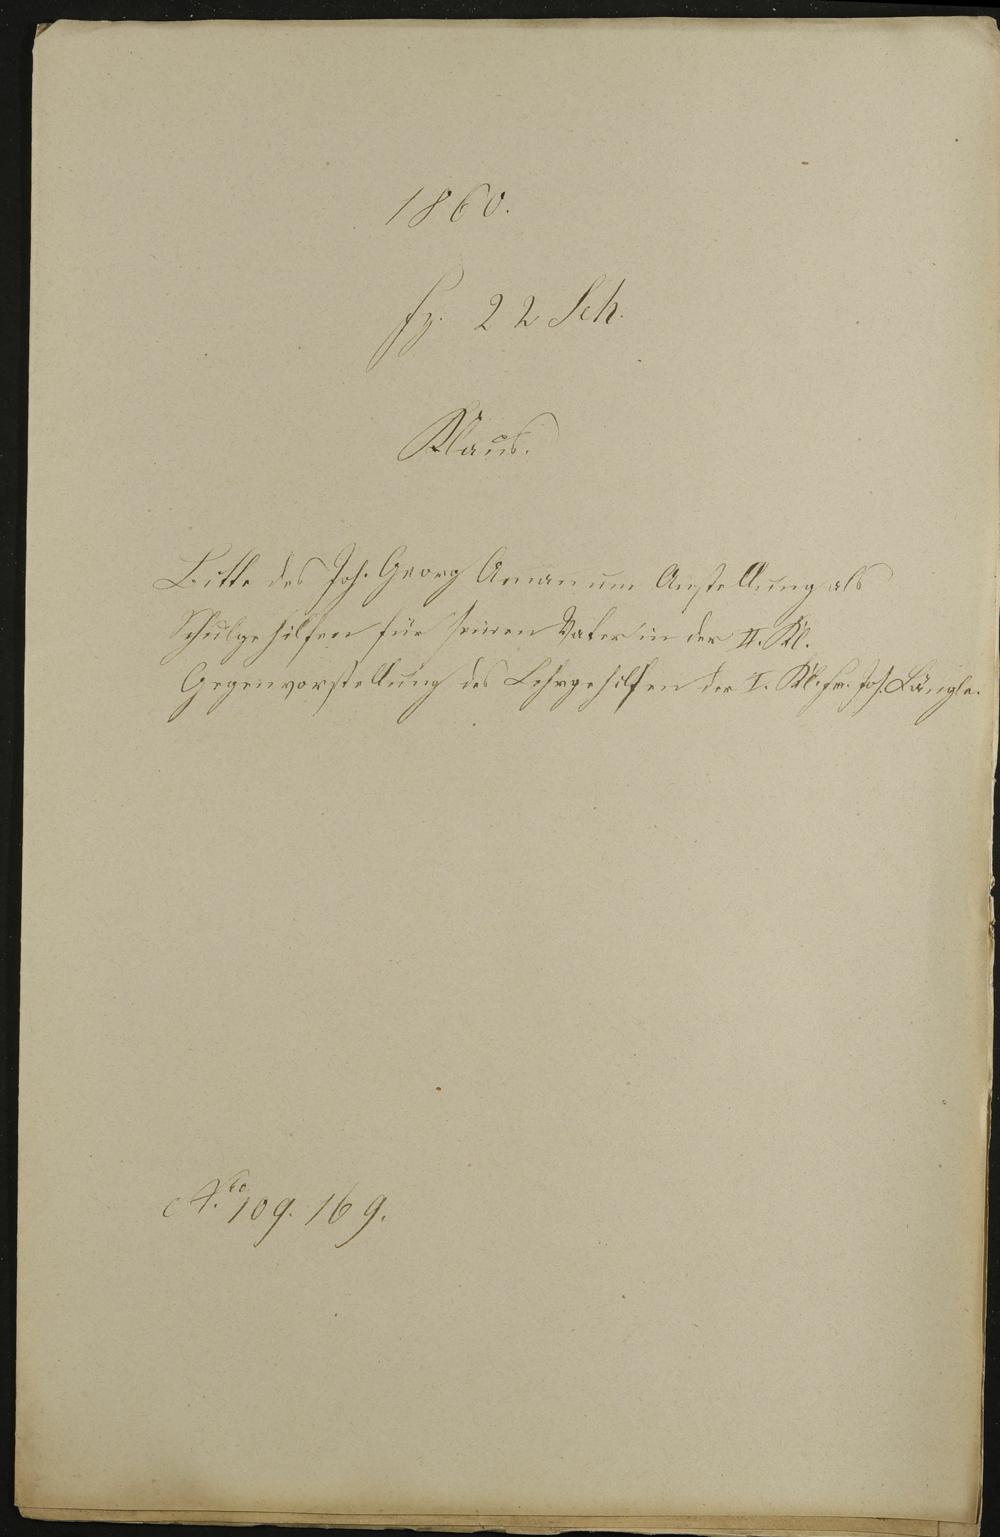 1860.
fz. 22 Sch.
Klaus.
Bitte des Joh. Georg Aman um Anstellung als
Schulgehilfen für seinen Vater in der II. Kl.
Gegenvorstellung des Lehrgehilfen der I. Kl. Hr. Joh. Längle.
No. 109. 169.